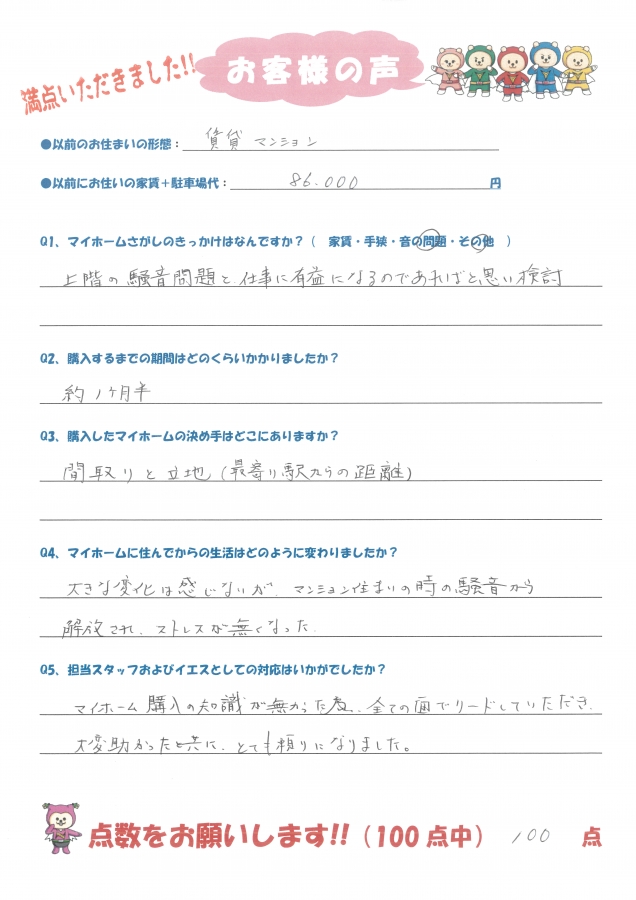 満点いただきました!!
お客様の声
●以前のお住まいの形態： 賃貸マンション
●以前にお住いの家賃＋駐車場代： 86.000 円
Q1、マイホームさがしのきっかけはなんですか？（ 家賃・手狭・音の問題・その他 ）
上階の騒音問題と、仕事に有益になるのであればと思い検討
Q2、購入するまでの期間はどのくらいかかりましたか？
約1ヶ月半
Q3、購入したマイホームの決め手はどこにありますか？
間取りと立地（最寄り駅からの距離）
Q4、マイホームに住んでからの生活はどのように変わりましたか？
大きな変化は感じないが、マンション住まいの時の騒音から
解放され、ストレスが無くなった．
Q5、担当スタッフおよびイエスとしての対応はいかがでしたか？
マイホーム購入の知識が無かった為、全ての面でリードしていただき、
大変助かったと共に、とても頼りになりました。
点数をお願いします!!（100点中） 100 点